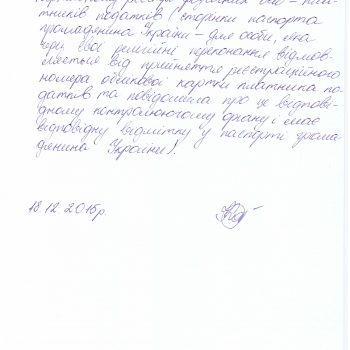 державному реєстрі фізичних осіб – плат-
ників податків (сторінки паспорта
громадянина України – для особи, яка
через свої релігійні переконання відмов-
ляється від прийняття реєстраційного
номера облікової картки платника по-
датків та повідомила про це відпові-
дному контролюючому органу і має
відповідну відмітку у паспорті грома-
дянина України).
18.12.2015р.